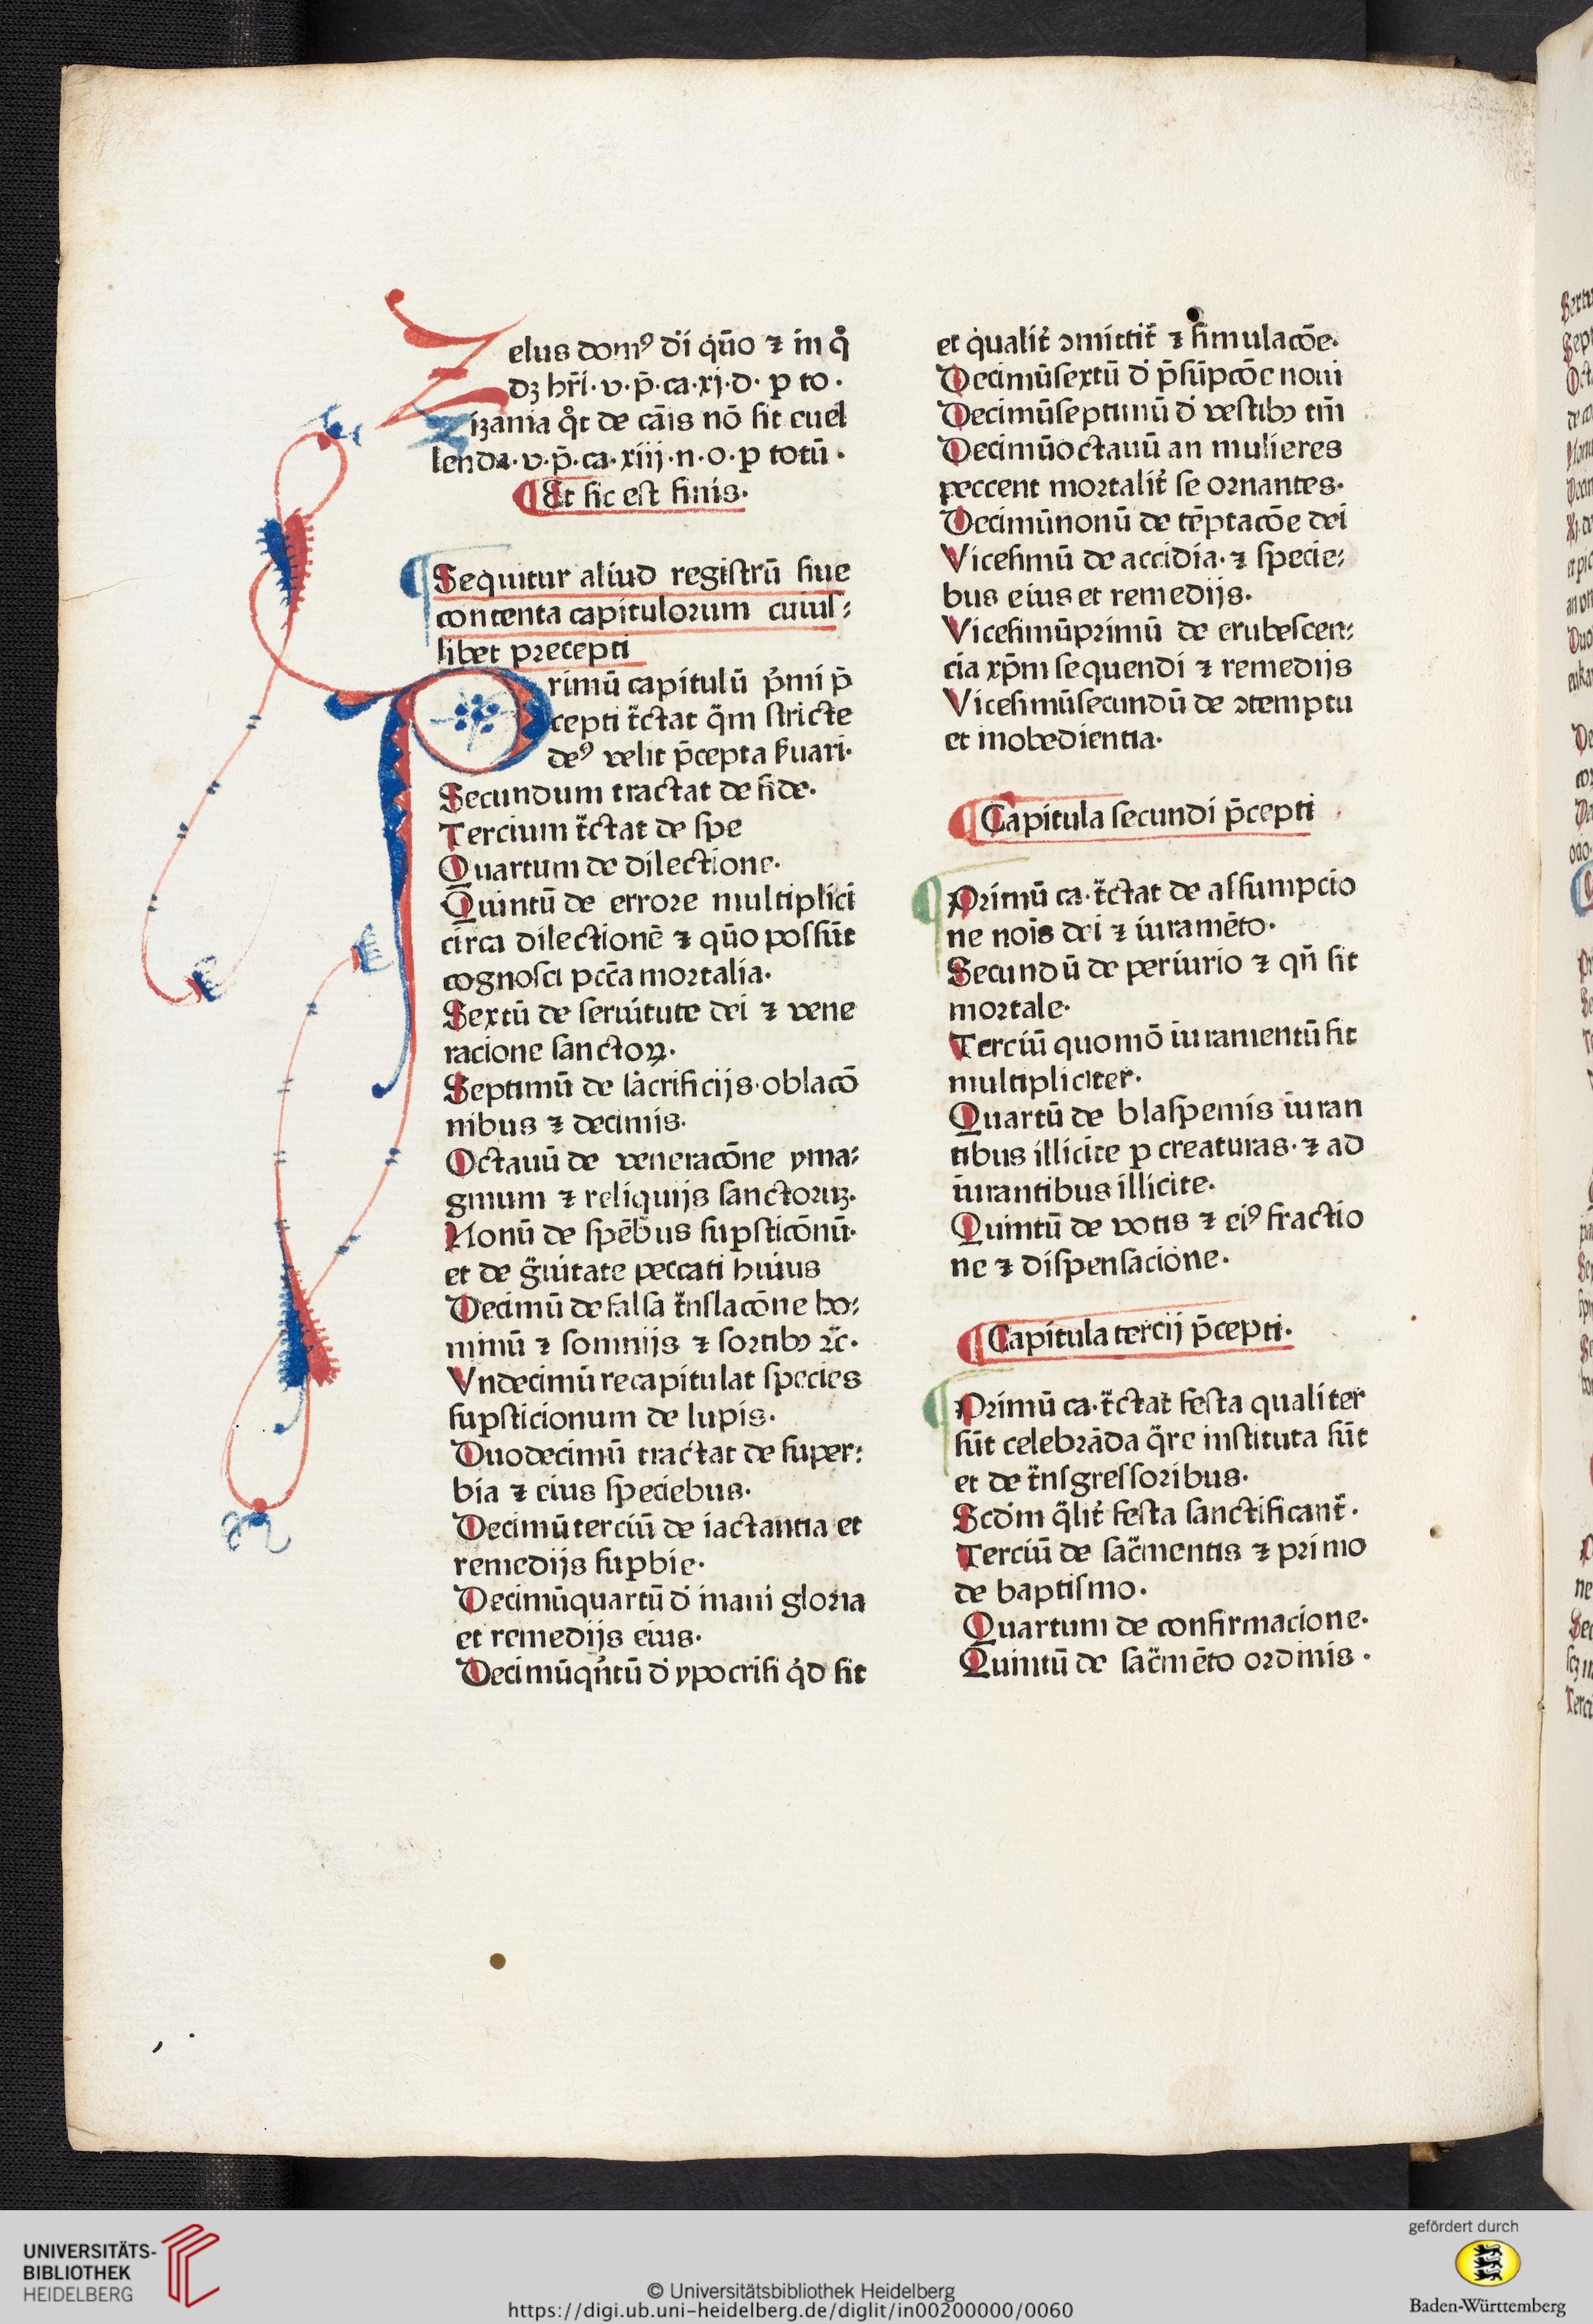 Zelus domꝰ dı̄ q̄uo ⁊ in qͦ
dꝫ hr̄i·v·p̄·ca·xj·d·ꝑ to·
Zizania qͦt de cāis nō sit euel
lenda·v·p̄·ca·xiij·n·o·ꝑ totū·
¶Et sic est finis·
¶Sequitur aliud registrū siue
contenta capitulorum cuius⸗
libet precepti
Primū capitulū pͥmi p̄
cepti tͣctat qͣm stricte
deꝰ velit p̄cepta ẜuari·
Secundum tractat de fide·
Tercium tͣctat de spe
Quartum de dilectione·
Quintū de errore multiplici
circa dilectionē ⁊ qūo possūt
cognosci pccā mortalia·
Sextū de seruitute dei ⁊ vene
racione sanctoꝝ·
Septimū de sacrificijs·oblacō
nibus ⁊ decimis·
Octauū de veneracōne yma⸗
ginum ⁊ reliquijs sanctoruꝫ·
Nonū de spēbus suꝑsticōnū·
et de gͣuitate peccati huius
Decimū de falsa tͣnslacōne ho⸗
minū ⁊ somnijs ⁊ sortibꝰ ⁊c̄·
Vndecimū recapitulat species
suꝑsticionum de lupis·
Duodecimū tractat de super⸗
bia ⁊ eius speciebus·
Decimūterciū de iactantia et
remedijs suꝑbie·
Decimūquartū d̓ inani gloria
et remedijs eius·
Decimūqͥntū d̓ ypocrisi qͥd sit
et qualit̓ ꝯmittit̉ ⁊ simulacōe·
Decimūsextū d̓ p̄sūpcōe noui
Decimūseptimū d̓ vestibꝰ tm̄
Decimūoctauū an mulieres
peccent mortalit̓ se ornantes·
Decimūnonū de tēptacōe dei
Vicesimū de accidia·⁊ specie⸗
bus eius et remedijs·
Vicesimūprimū de erubescen⸗
cia xp̄m sequendi ⁊ remedijs
Vicesimūsecundū de ꝯtemptu
et inobedientia·
¶Capitula secundi p̄cepti
¶Primū ca·tͣctat de assumpcio
ne nois̄ dei ⁊ iuramēto·
Secundū de periurio ⁊ qn̄ sit
mortale·
Terciū quomō iuramentū sit
multipliciter·
Quartū de blaspemis iuran
tibus illicite ꝑ creaturas·⁊ ad
iurantibus illicite·
Quintū de votis ⁊ eiꝰ fractio
ne ⁊ dispensacione·
¶Capitula tercij p̄cepti·
¶Primū ca·tͣctat festa qualiter
sūt celebrāda qͣre instituta sūt
et de tͣnsgressoribus·
Scd̓m qͣlit̓ festa sanctificant̉·
Terciū de sacͣmentis ⁊ primo
de baptismo·
Quartum de confirmacione·
Quintū de sacͣmēto ordinis·
UNIVERSITÄTS-
BIBLIOTHEK
HEIDELBERG
© Universitätsbibliothek Heidelberg
https://digi.ub.uni-heidelberg.de/diglit/in00200000/0060
gefördert durch
Baden-Württemberg